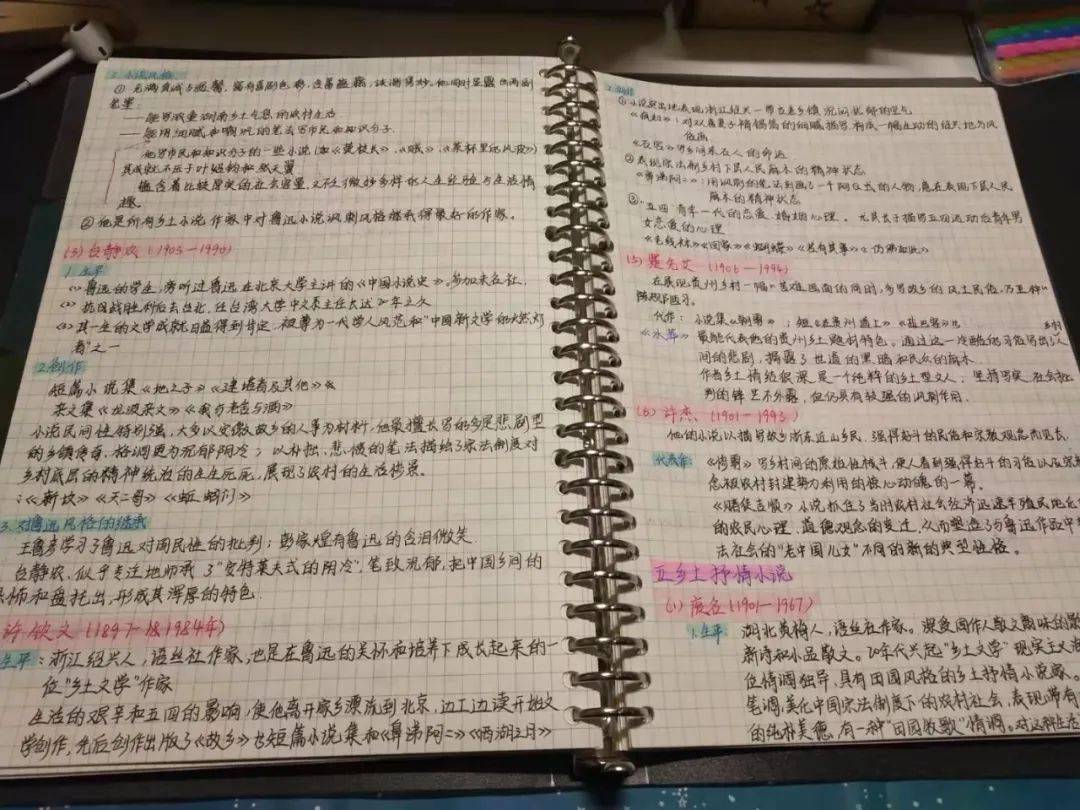 3. 小说风格
① 充满真诚与温馨，富有喜剧色彩，含蓄蕴藉，诙谐得妙。他同时显露出两副
笔墨：
——能写浓重湖南乡土气息的农村生活
——能用细腻和嘲讽的笔法写市民和知识分子.
他写市民和知识分子的一些小说（如《莫校长》、《贼》、《茶杯里的风波》）
其成就不亚于叶绍钧和张天翼
蕴含着比较厚实的社会容量，又不乏微妙多样的人生经验与生活情
趣。
②他是所有乡土小说作家中对鲁迅小说讽刺风格继承得最好的作家。
(3) 台静农 (1903—1990)
1. 生平
(1) 鲁迅的学生，旁听过鲁迅在北京大学主讲的《中国小说史》。参加未名社.
(2) 抗日战胜利后去台北，任台湾大学中文系主任长达20年之久
(3) 其一生的文学成就日益得到肯定，被尊为一代学人风范和“中国新文学的燃灯
者”之一
2. 创作
短篇小说集《地之子》《建塔者及其他》
杂文集《龙坡杂文》《我与老舍与酒》
小说民间性特别强，大多以安徽故乡的人事为材料，他最擅长写的多是悲剧型
的乡镇传奇，格调更为沉郁阴冷；以朴拙、悲愤的笔法描绘了宗法制度对
乡村底层的精神统治的生生死死，展现了农村的生活惨景。
：《新坟》《天二哥》《蚯蚓们》
3. 对鲁迅风格的继承
王鲁彦学习了鲁迅对国民性的批判；彭家煌有鲁迅的含泪微笑
台静农，似乎专注地师承了“安特莱夫式的阴冷”，笔致沉郁，把中国乡间的
和盘托出，形成其浑厚的特色.
许钦文 (1897-1984年)
生平：浙江绍兴人，语丝社作家，也是在鲁迅的关怀和培养下成长起来的一
位“乡土文学”作家
生活的艰辛和五四的影响，使他离开家乡漂流到北京，边工边读开始文
学创作，先后创作出版了《故乡》短篇小说集和《鼻涕阿二》《西湖之月》
2. 创作
①小说突出地表现浙江绍兴一带古老乡镇沉闷忧郁的空气
《疯妇》：对双喜妻子精锡箔的细腻描写，构成一幅生动的绍兴地方风
俗画
《石宕》写乡间采石人的命运
②表现宗法制乡村下层人民麻木的精神状态
《鼻涕阿二》：用讽刺的笔法刻画了一个阿Q式的人物，意在表现下层人民
麻木的精神状态
③. 五四青年一代的恋爱、婚姻心理。尤其长于描写五四运动后青年男
女恋爱的心理
《毛线袜》《回家》《蝴蝶》《若有其事》《仿佛如此》
(5) 蹇先艾 (1906—1994)
在展现贵州乡村一幅幅苦难画面的同时，多写故乡的风土民俗，乃至种
陈规陋习。
代作：小说集《朝雾》；短《在贵州道上》《盐巴客》
《水葬》最能代表他的贵州乡土题材特色。通过这一冷酷的习俗写出了乡村人
间的悲剧，揭露了世道的黑暗和民众的麻木.
作者乡土情结很深，是一个纯粹的乡土型文人；坚持写实，社会批
判的锋芒不外露，但仍具有较强的讽刺作用.
(6) 许杰. (1901—1993)
他的小说以描写故乡浙东近山乡民，强悍好斗的民俗和宗教观念而见长.
代表作：《惨雾》写乡村间的原始性械斗，使人看到强悍好斗的习俗以及宗
念被农村封建势力利用的惊心动魄的一幕.
《赌徒吉顺》小说抓住了当时农村社会经济迅速半殖民地化
的农民心理、道德观念的变迁，从而塑造了与鲁迅作品中
法社会的“老中国儿女”不同的新的典型性格。
五 乡土抒情小说
(1) 废名 (1901—1967)
1. 生平：湖北黄梅人，语丝社作家。深受周作人散文趣味的影
新诗和小品散文。20年代兴起“乡土文学”现实主义
位情调独异、具有田园风格的乡土抒情小说家。
笔调，美化中国宗法制度下的农村社会，表现带有
的纯朴美德，有一种“田园牧歌”情调。对这种生活